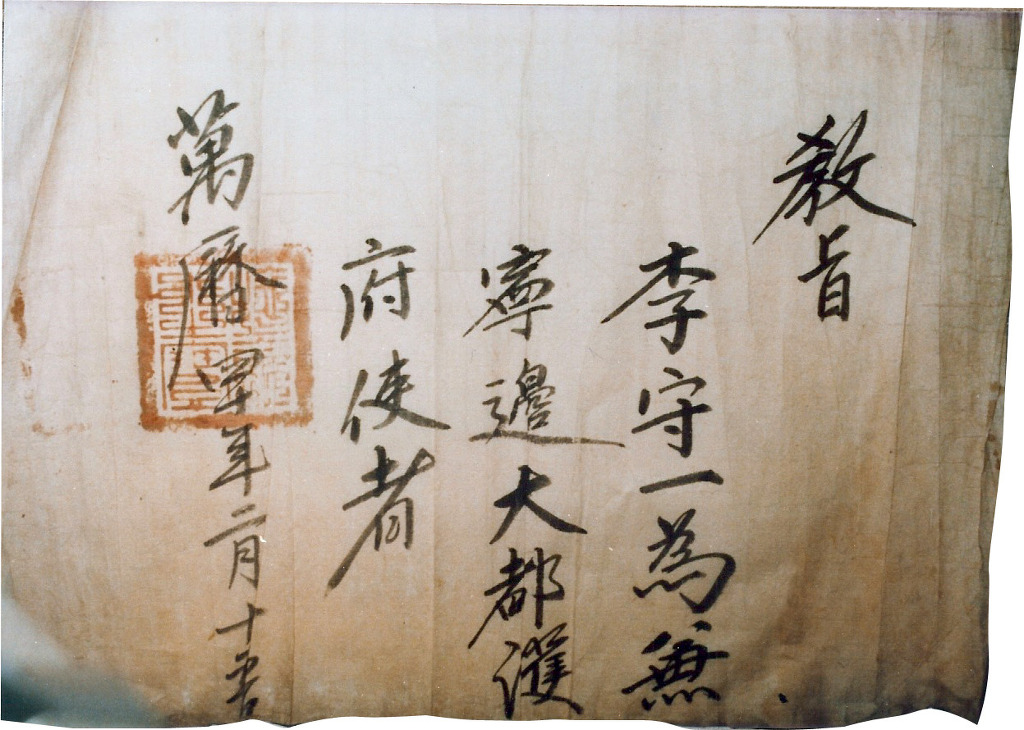 敎旨
李守一為兼
寧邊大都護
府使者
萬曆四十年二月十